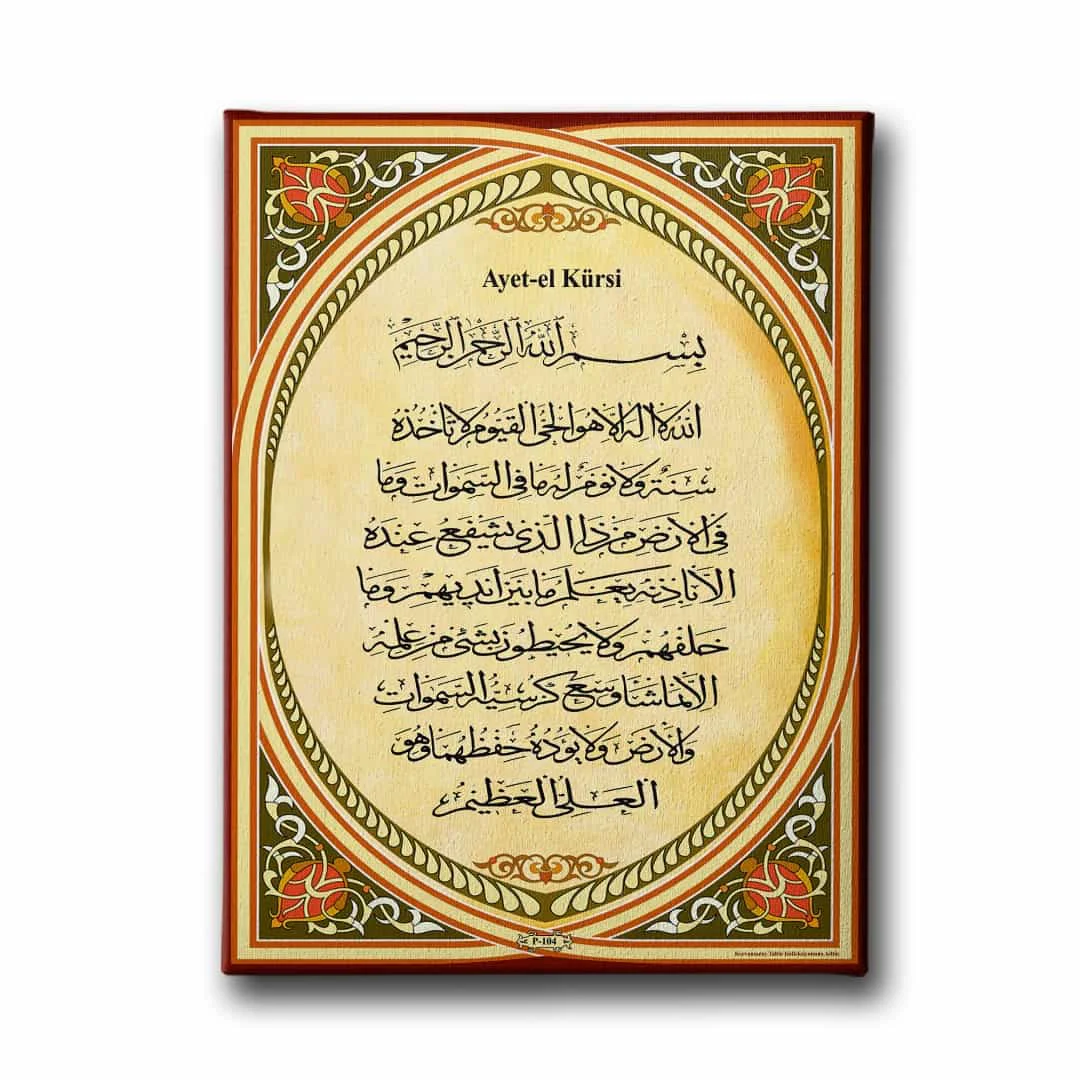 Ayet-el Kürsi
بِسْمِ اللّٰهِ الرَّحْمٰنِ الرَّحِيْمِ
اَللّٰهُ لَا اِلٰهَ اِلَّا هُوَ الْحَىُّ الْقَيُّومُ لَا تَأْخُذُهُ
سِنَةٌ وَلَا نَوْمٌ لَهُ مَا فِى السَّمٰوَاتِ وَمَا
فِى الْاَرْضِ مَنْ ذَا الَّذِى يَشْفَعُ عِنْدَهُ
اِلَّا بِاِذْنِهِ يَعْلَمُ مَا بَيْنَ اَيْدِيهِمْ وَمَا
خَلْفَهُمْ وَلَا يُحِيطُونَ بِشَىْءٍ مِنْ عِلْمِهِ
اِلَّا بِمَا شَاءَ وَسِعَ كُرْسِيُّهُ السَّمٰوَاتِ
وَالْاَرْضَ وَلَا يَؤُدُهُ حِفْظُهُمَا وَهُوَ
الْعَلِىُّ الْعَظِيمُ
P-104